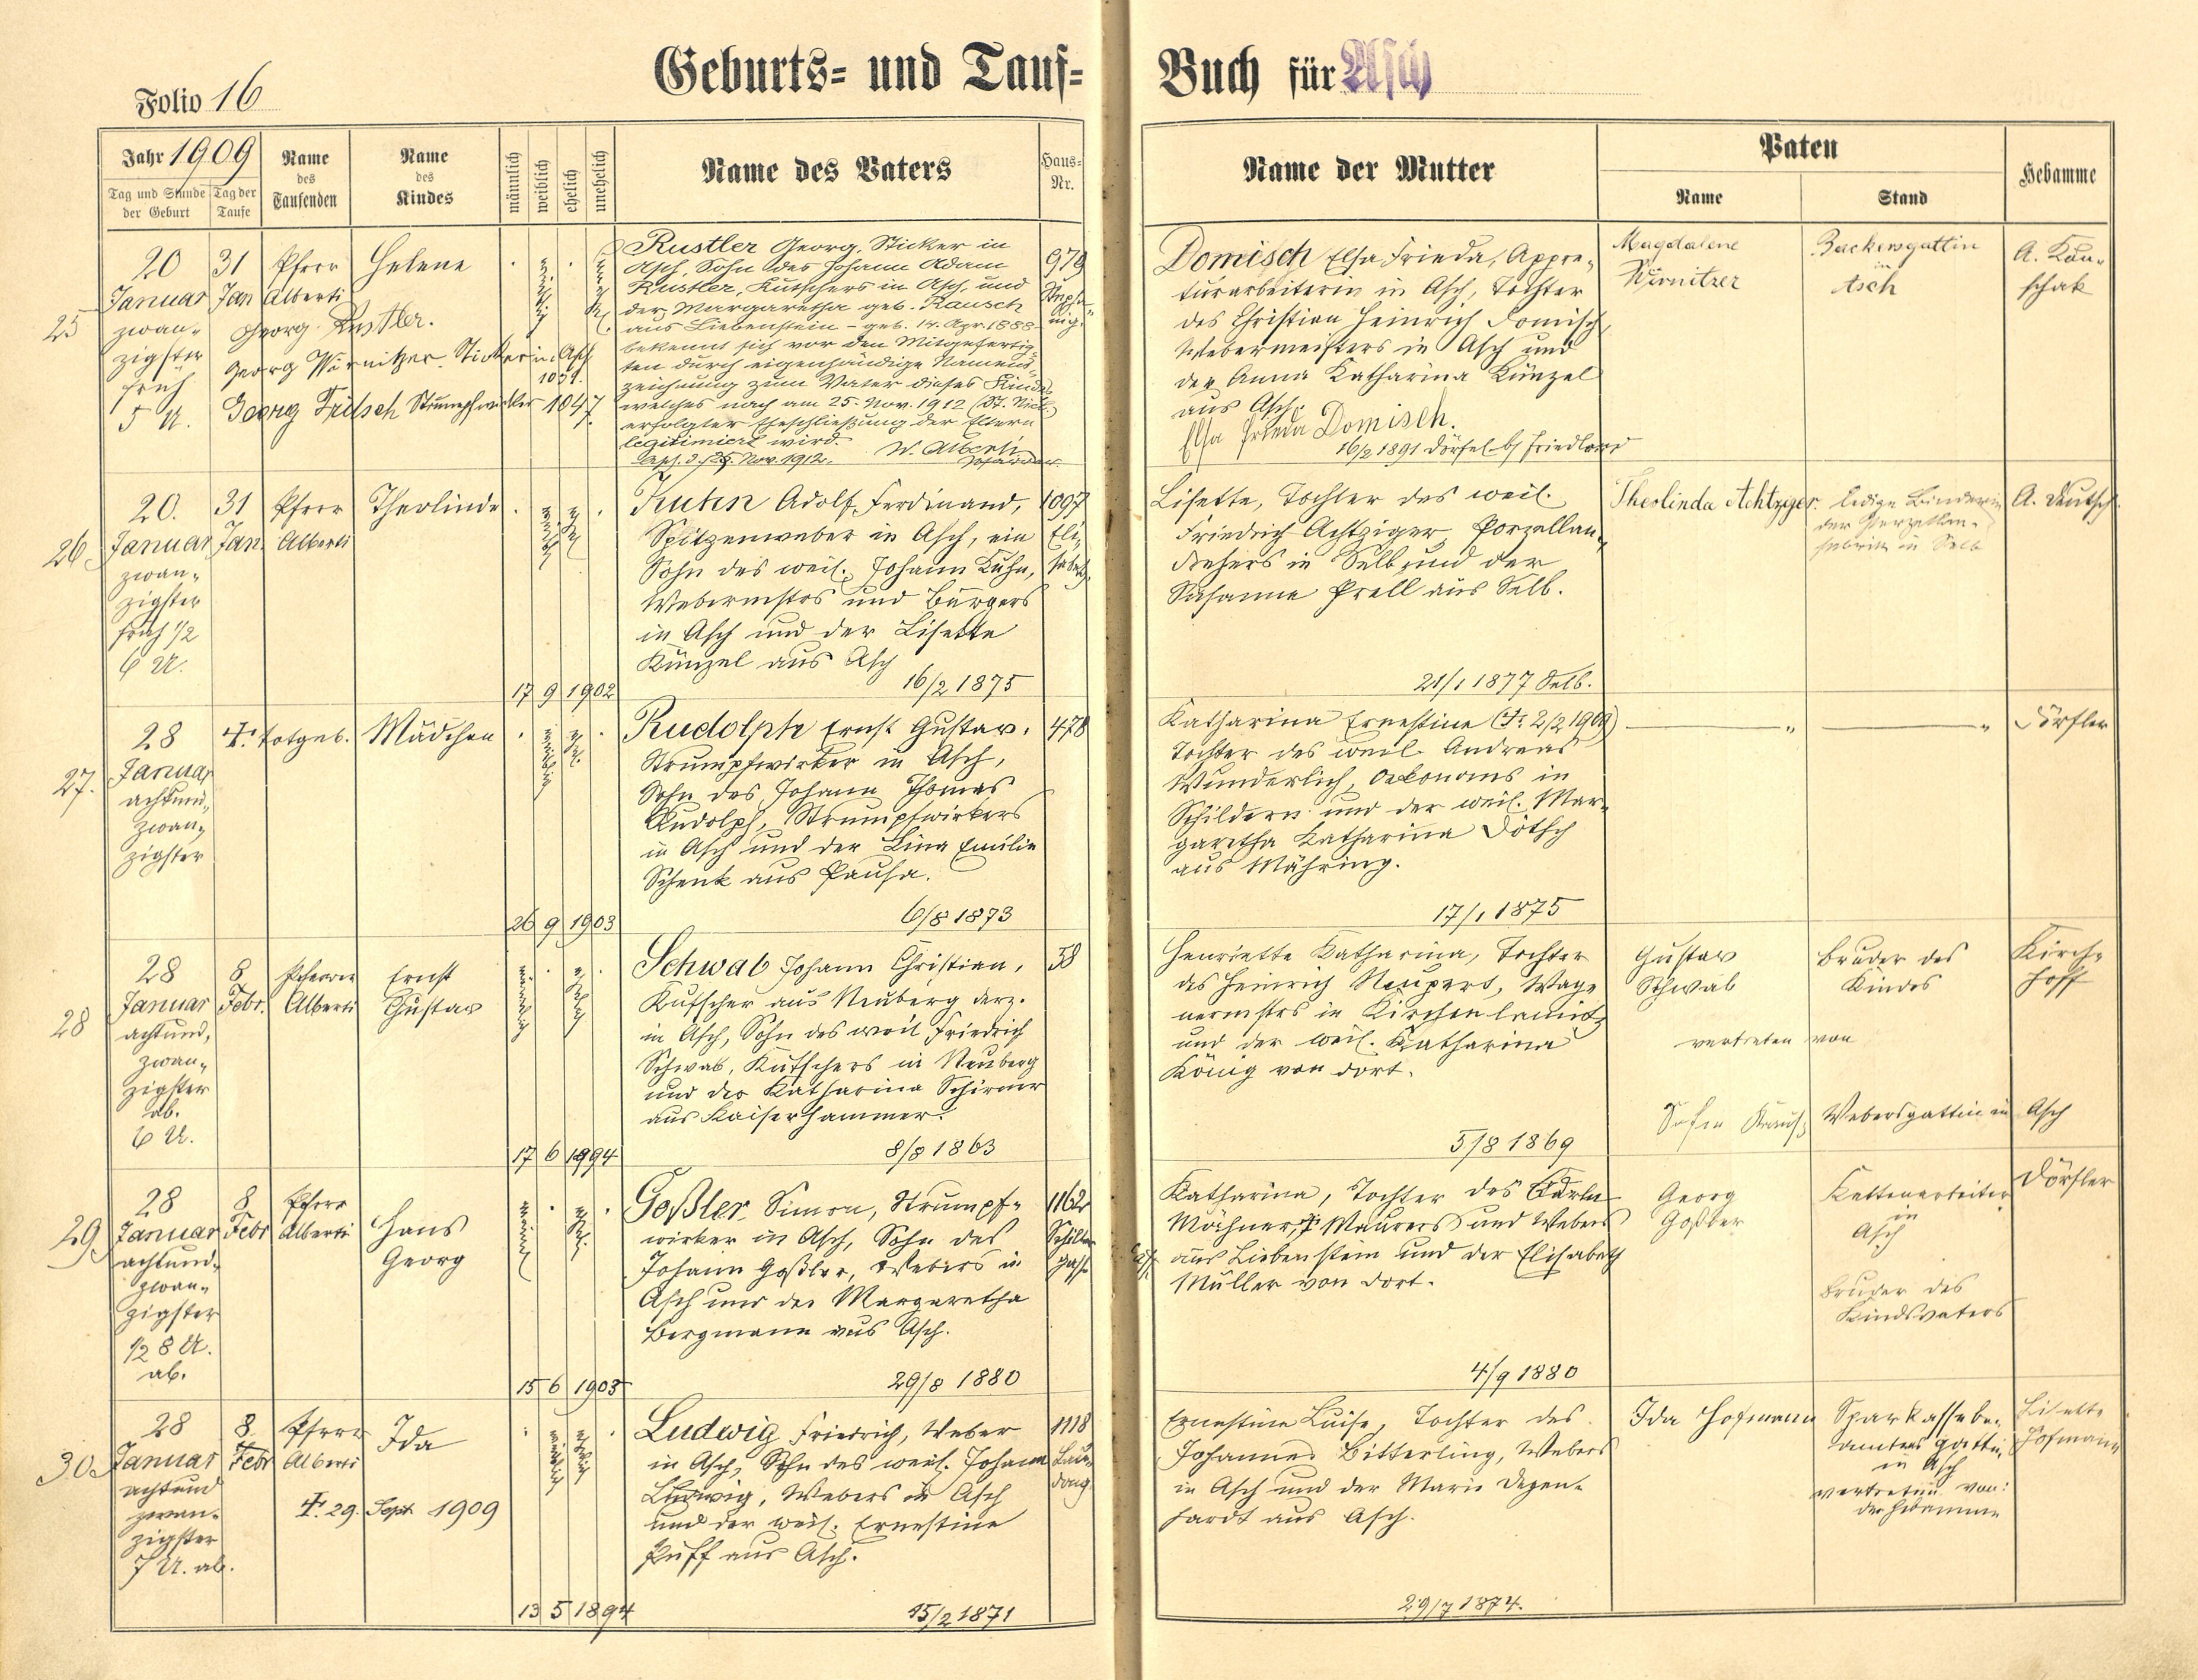 Folio 16
Geburts- und Tauf-
Buch für Asch
Jahr 1909
Tag und Stunde der Geburt
Tag der Taufe
Name des Taufenden
Name des Kindes
männlich
weiblich
ehelich
unehelich
Name des Vaters
Haus-Nr.
Name der Mutter
Paten
Name
Stand
Hebamme
25
20
Januar
zwan-
zigster
früh
5 U.
31
Jan
Pfarr
Alberti
Helene
Georg Rustler.
Georg Wirnitzer Sticker in Asch
1037.
Georg Fritsch Strumpfwirker 1047.
Rustler Georg, Sticker in
Asch, Sohn des Johann Adam
Rustler, Kutschers in Asch, und
der Margaretha geb. Rausch
aus Liebenstein – geb. 14. Apr. 1888
bekennt sich vor den Mitgefertig-
ten durch eigenhändige Namens-
zeichnung zum Vater dieses Kindes
welches nach am 25. Nov. 1912
erfolgter Eheschließung der Eltern
legitimiert wird.
Asch, d. 25. Nov. 1912. W. Alberti
979
Domisch Elsa Frieda, Appre-
turarbeiterin in Asch, Tochter
des Christian Heinrich Domisch,
Webermeisters in Asch und
der Anna Katharina Künzel
aus Asch.
Elsa Frieda Domisch.
16/2 1891 Dörfel b/ Friedland
Magdalene
Wirnitzer
Bäckersgattin
in
Asch
A. Kau-
schak
26
20.
Januar
zwan-
zigster
früh 1/2
6 U.
31
Jan.
Pfarr
Alberti
Theolinde
17 9 1902
Kuhn Adolf Ferdinand,
Spitzenweber in Asch, ein
Sohn des weil. Johann Kuhn,
Webermstrs und Bürgers
in Asch und der Lisette
Künzel aus Asch
16/2 1875
1097
Eli-
sabeth
Lisette, Tochter des weil.
Friedrich Achtziger, Porzellan-
drehers in Selb, und der
Susanna Prell aus Selb.
21/1 1877 Selb.
Theolinda Achtziger.
ledige Binderin
der Porzellan-
fabrik in Selb
A. Deutsch
27.
28
Januar
achtund-
zwan-
zigster
totgeb.
Mädchen
26 9 1903
Rudolph Ernst Gustav,
Strumpfwirker in Asch,
Sohn des Johann Thomas
Rudolph, Strumpfwirkers
in Asch und der Lina Emilie
Schenk aus Pausa.
6/8 1873
478
Katharina Ernestine († 2/2 1909)
Tochter des weil. Andreas
Wunderlich, Oekonoms in
Schildern und der weil. Mar-
garetha Katharina Dötsch
aus Mähring.
17/1 1875
Dörfler
28
28
Januar
achtund-
zwan-
zigster
ab.
6 U.
8
Febr.
Pfarrer
Alberti
Ernst
Gustav
17 6 1894
Schwab Johann Christian,
Kutscher aus Neuberg derz.
in Asch, Sohn des weil Friedrich
Schwab, Kutschers in Neuberg
und der Katharina Schirmer
aus Kaiserhammer.
8/8 1863
58
Henriette Katharina, Tochter
des Heinrich Neupert, Wag-
nermstrs in Kirchenlamitz
und der weil. Katharina
König von dort.
5/8 1869
Gustav
Schwab
Bruder des
Kindes
vertreten von
Sofie Krauß Webersgattin in Asch
Kirch-
hoff
29.
28
Januar
achtund-
zwan-
zigster
1/2 8 U.
ab.
8
Febr
Pfarr
Alberti
Hans
Georg
15 6 1903
Goßler Simon, Strumpf-
wirker in Asch, Sohn des
Johann Goßler, Webers in
Asch und der Margaretha
Bergmann aus Asch.
29/8 1880
1162
Katharina, Tochter des Karl
Mächner, Maurers und Webers
aus Liebenstein und der Elisabeth
Müller von dort.
4/9 1880
Georg
Goßler
Kettenarbeiter
in
Asch
Bruder des
Kindsvaters
Dörfler
30.
28
Januar
achtund
zwan-
zigster
7 U. ab.
8
Febr
Pfarr
Alberti
Ida
†. 29. Sept. 1909
13 5 1894
Ludwig Friedrich, Weber
in Asch, Sohn des weil. Johann
Ludwig, Webers in Asch
und der weil. Ernestine
Puff aus Asch.
15/2 1871
1118
Ernestine Luise, Tochter des
Johannes Bitterling, Webers
in Asch und der Marie Degen-
hardt aus Asch.
29/7 1874.
Ida Hofmann
Sparkassebe-
amtens gattin
in Asch
vertreten von:
der Hebamme
Lisette
Hofmann